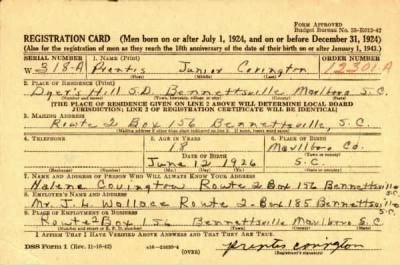 FORM APPROVED
Budget Bureau No. 33-R012-42
REGISTRATION CARD (Men born on or after July 1, 1924, and on or before December 31, 1924)
(Also for the registration of men as they reach the 18th anniversary of the date of their birth on or after January 1, 1943.)
SERIAL NUMBER 1. NAME (Print) ORDER NUMBER
W 318-A Prentis Junior Covington 12301A
(First) (Middle) (Last)
2. PLACE OF RESIDENCE (Print)
Dyer's Hill S.D. Bennettsville Marlboro S.C.
[THE PLACE OF RESIDENCE GIVEN ON LINE 2 ABOVE WILL DETERMINE LOCAL BOARD
JURISDICTION; LINE 2 OF REGISTRATION CERTIFICATE WILL BE IDENTICAL]
3. MAILING ADDRESS
Route 2 Box 156 Bennettsville, S.C.
4. TELEPHONE 5. AGE IN YEARS 6. PLACE OF BIRTH
18 Marlboro Co.
DATE OF BIRTH (Town or county)
June 12 1926 S.C.
(Mo.) (Day) (Yr.) (State or country)
7. NAME AND ADDRESS OF PERSON WHO WILL ALWAYS KNOW YOUR ADDRESS
Halene Covington Route 2 Box 156 Bennettsville S.C.
8. EMPLOYER'S NAME AND ADDRESS
Mr. J. L. Wallace Route 2-Box 185 Bennettsville S.C.
9. PLACE OF EMPLOYMENT OR BUSINESS
Route 2 Box 156 Bennettsville Marlboro S.C
I AFFIRM THAT I HAVE VERIFIED ABOVE ANSWERS AND THAT THEY ARE TRUE.
DSS Form 1 (Rev. 11-16-42) (OVER) prentis covington
(Registrant's signature)